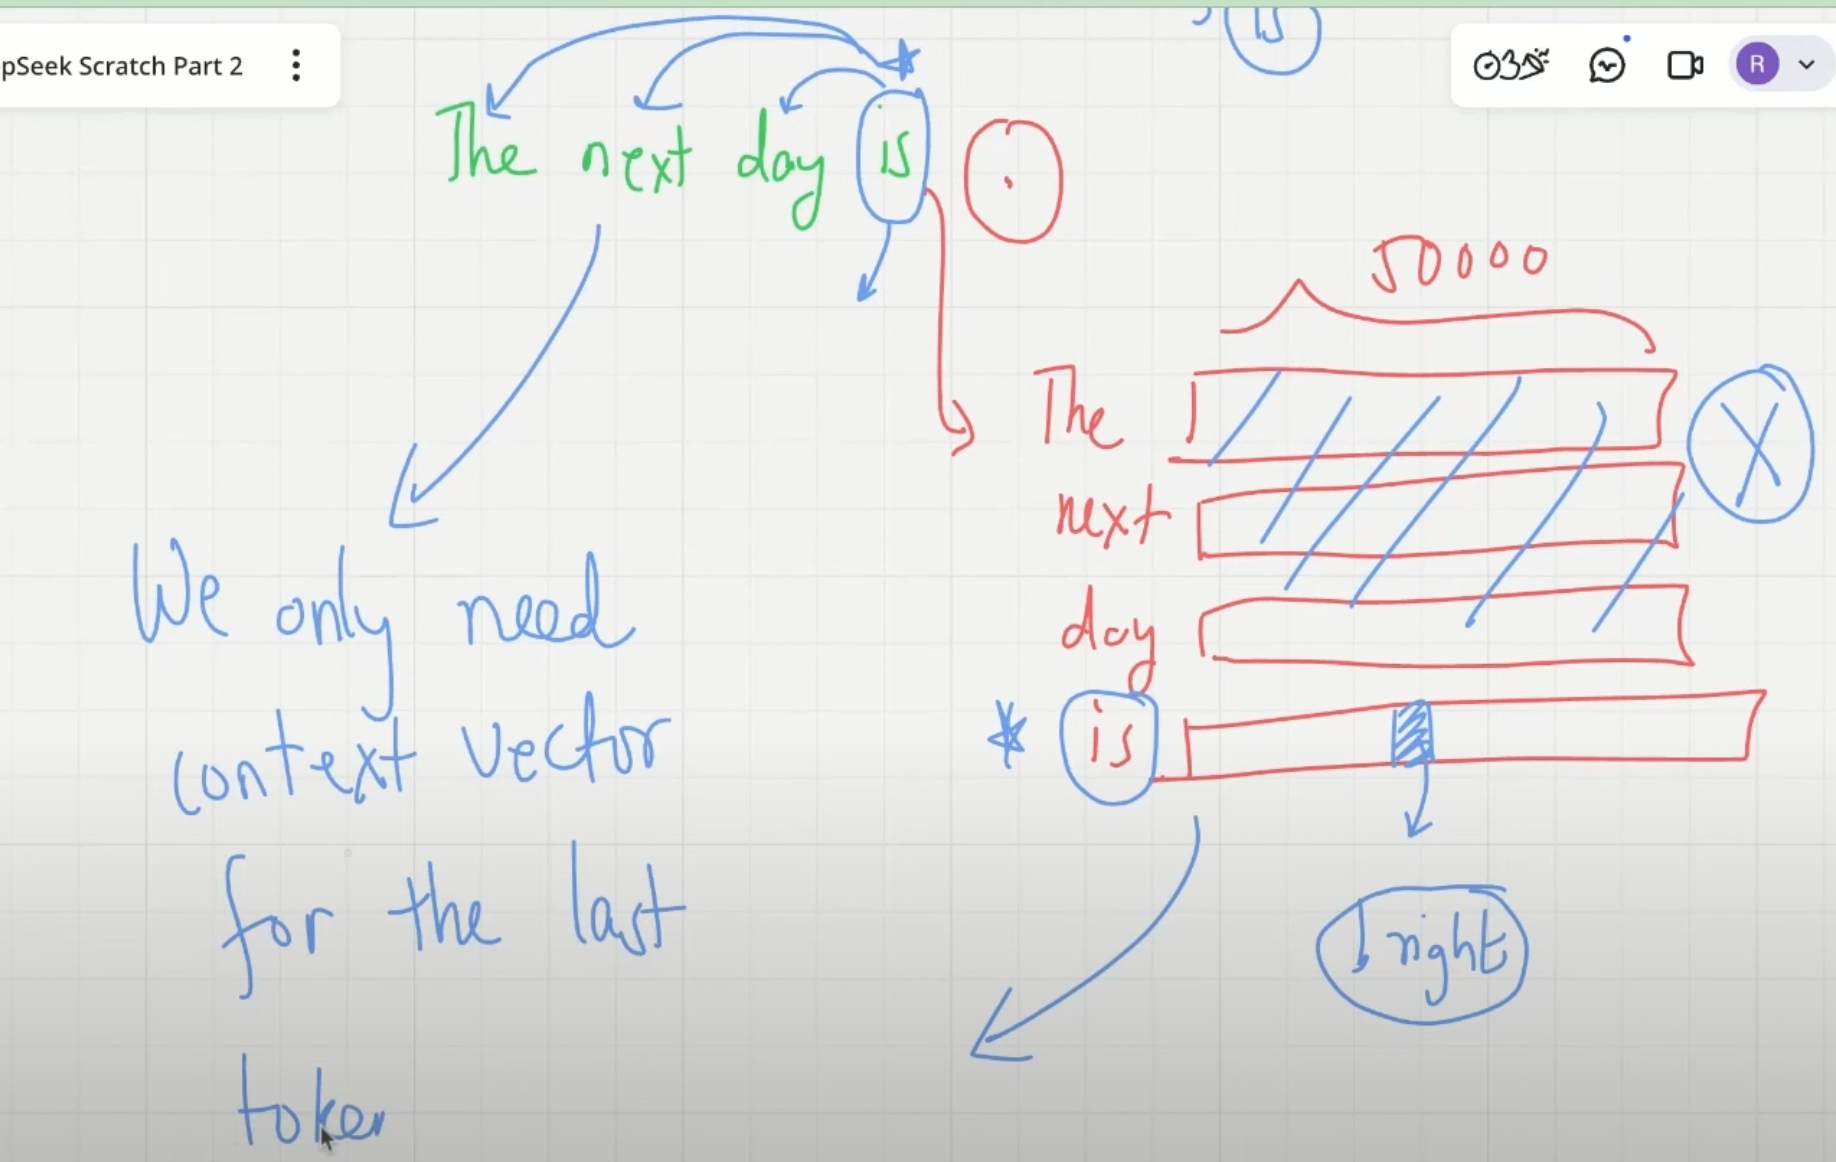 is
pSeek Scratch Part 2
R
The next day is .
50000
The
next
day
is
bright
We only need
context vector
for the last
token